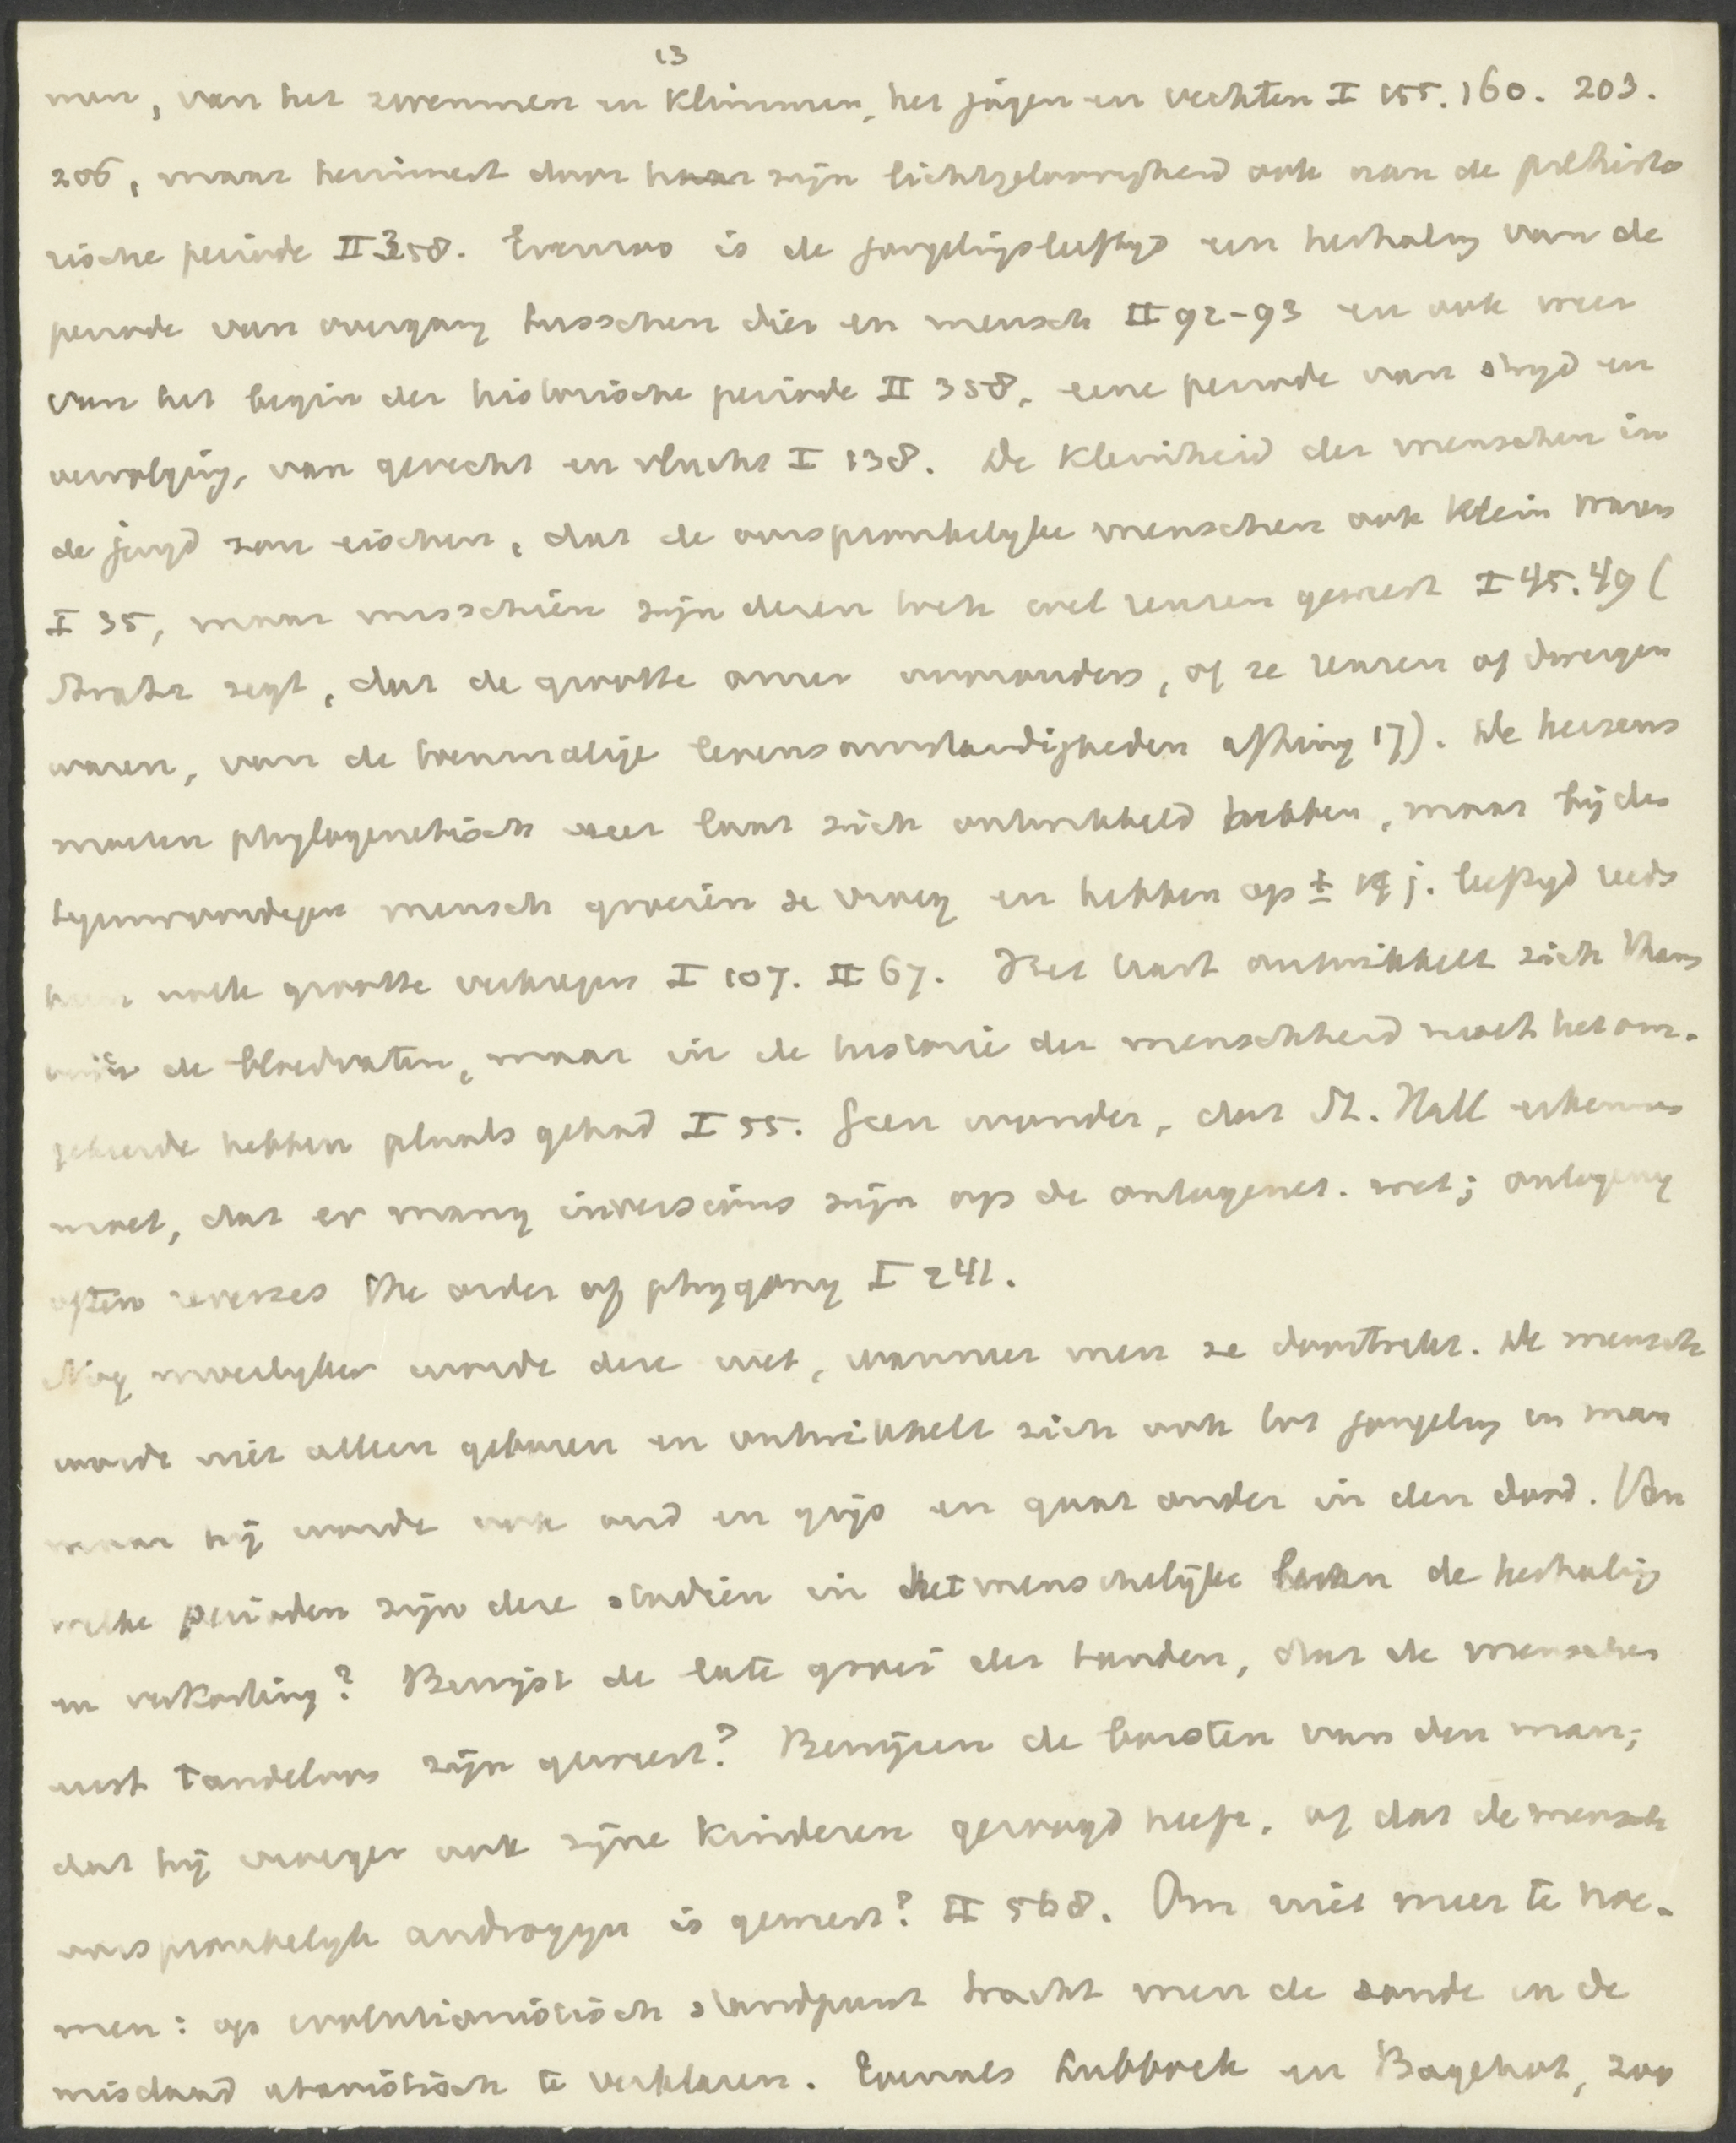 13
nen, van het zwemmen en klimmen, het jagen en vechten I 155. 160. 203.
206, maar herinnert door haar zijn lichtgeloovigheid ook aan de prehisto
rische periode II 358. Evenzoo is de jongelingsleeftijd een herhaling van de
periode van overgang tusschen dier en mensch II 92-93 en ook weer
van het begin der historische periode II 358, eene periode van strijd en
vervolging, van gevecht en vlucht I 138. De kleinheid der menschen in
de jeugd zou eischen, dat de oorspronkelijke menschen ook klein waren
I 35, maar misschien zijn dezen toch wel reuzen geweest I 45. 49 (
Stratz zegt, dat de grootte onzer voorouders, of ze reuzen of dwergen
waren, van de toenmalige levensomstandigheden afhing 17). De hersens
moeten phylogenetisch zeer laat zich ontwikkeld hebben, maar bij den
tegenwoordigen mensch groeien ze vroeg en hebben op ± 14 j. leeftijd reeds
hun volle grootte verkregen I 107. II 67. Het hart ontwikkelt zich thans
vóór de bloedvaten, maar in de historie der menschheid moet het om-
gekeerde hebben plaats gehad I 55. Geen wonder, dat St. Hall erkennen
moet, dat er many inversions zijn op de ontogenet. wet; ontogeny
often reverses the order of phygony I 241.
Nog moeilijker wordt deze wet, wanneer men ze doortrekt. De mensch
wordt niet alleen geboren en ontwikkelt zich ook tot jongeling en man
maar hij wordt ook oud en grijs en gaat onder in den dood. Van
welke perioden zijn deze stadiën in het menschelijke leven de herhaling
en verkorting? Bewijst de late groei der tanden, dat de menschen
eerst tandeloos zijn geweest? Bewijzen de borsten van den man,
dat hij vroeger ook zijne kinderen gezoogd heeft, of dat de mensch
oorspronkelijk androgyn is geweest? II 568. Om niet meer te noe-
men: op evolutionistisch standpunt tracht men de zonde en de
misdaad atavistisch te verklaren. Evenals Lubbock en Bagehot, zoo